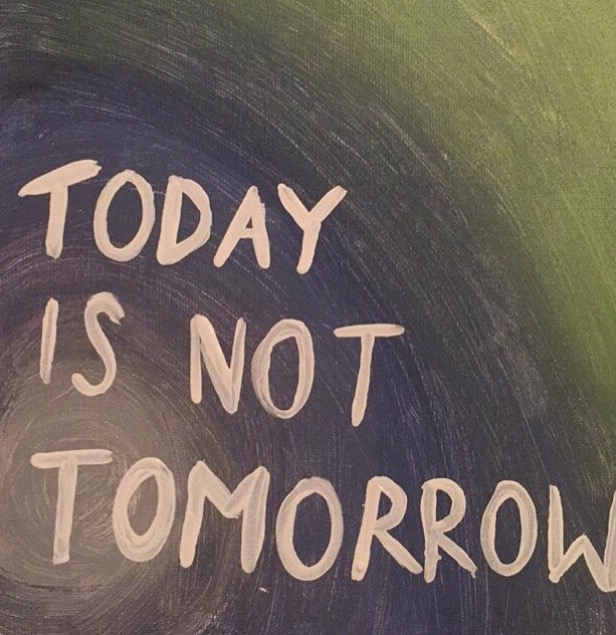 TODAY
IS NOT
TOMORROW